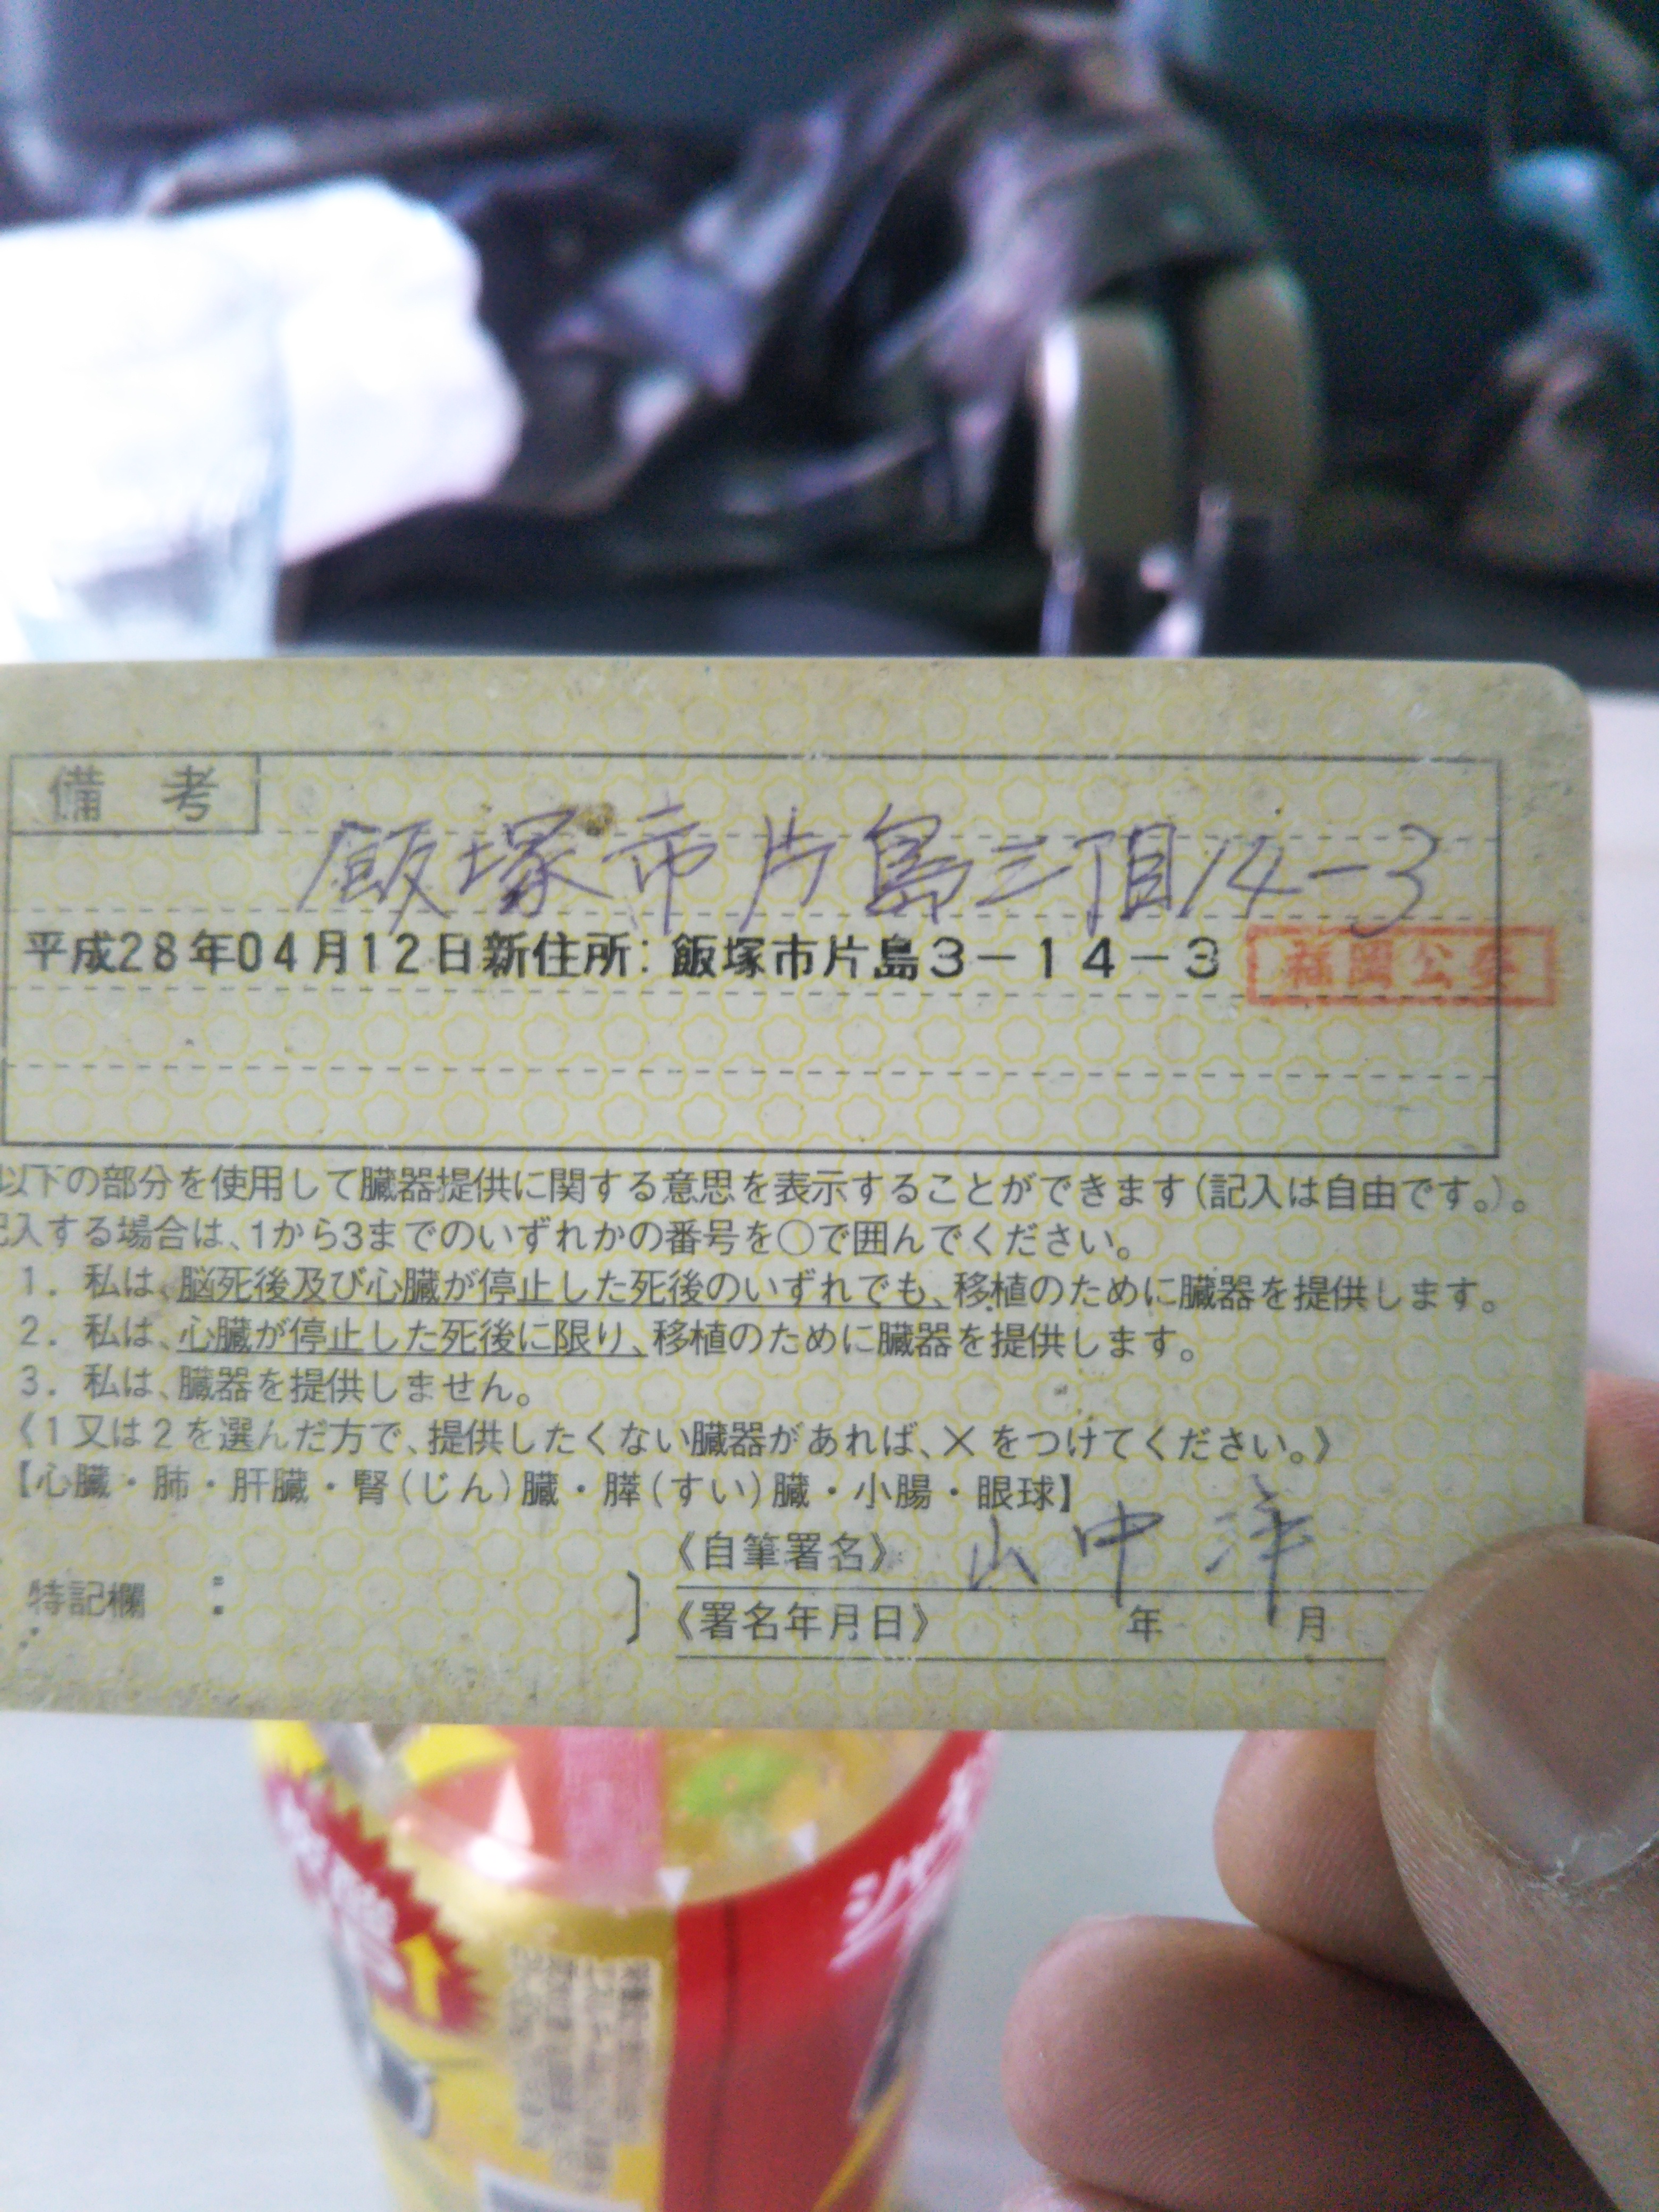 備考
飯塚市片島三丁目14-3
平成28年04月12日新住所:飯塚市片島3-14-3
福岡公委
以下の部分を使用して臓器提供に関する意思を表示することができます(記入は自由です。)。
記入する場合は、1から3までのいずれかの番号を○で囲んでください。
1. 私は、脳死後及び心臓が停止した死後のいずれでも、移植のために臓器を提供します。
2. 私は、心臓が停止した死後に限り、移植のために臓器を提供します。
3. 私は、臓器を提供しません。
《1又は2を選んだ方で、提供したくない臓器があれば、×をつけてください。》
【心臓・肺・肝臓・腎(じん)臓・膵(すい)臓・小腸・眼球】
《自筆署名》 山中洋
特記欄 : 〕
《署名年月日》 年 月